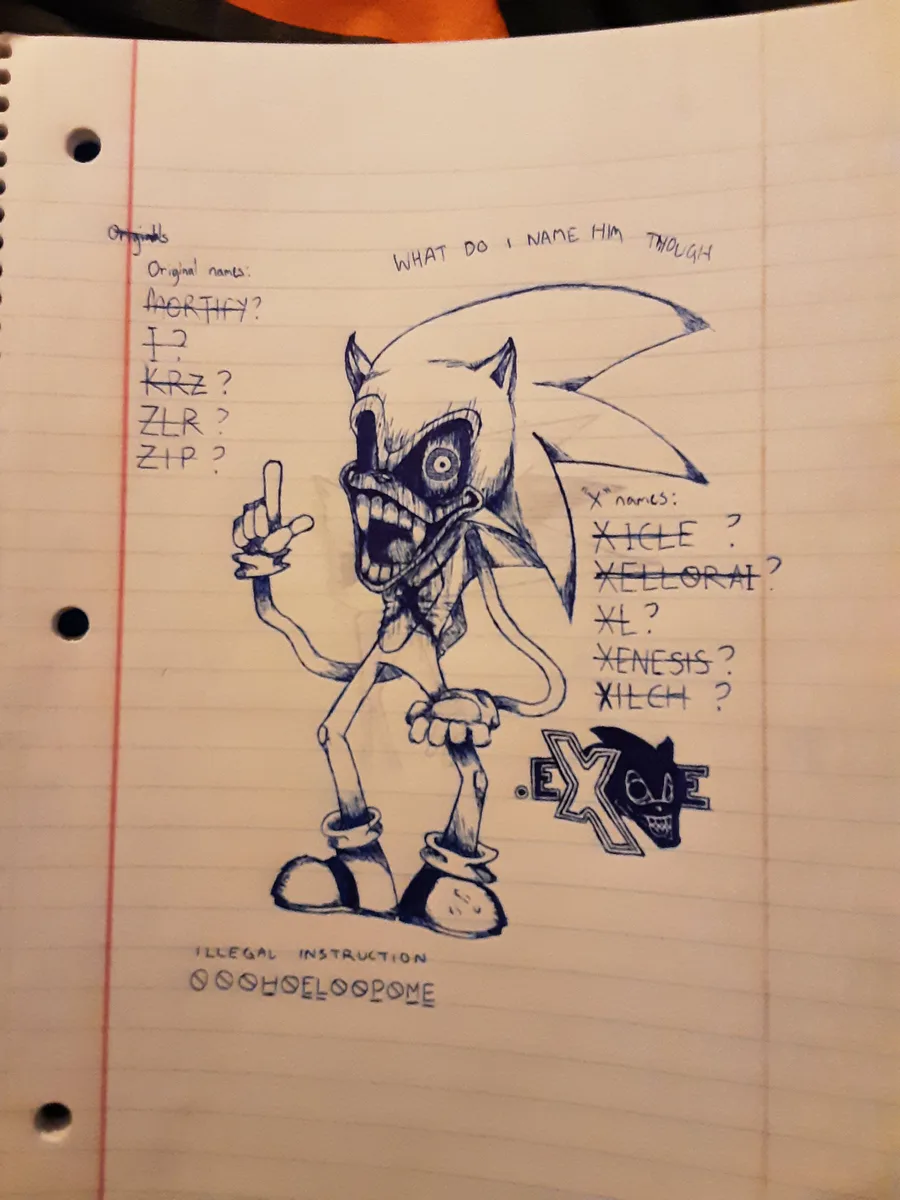 Originals
WHAT DO I NAME HIM THOUGH
Original names:
MORTIFY?
I?
KRZ?
ZLR?
ZIP?
"X" names:
XICLE ?
XELLORAI?
XL?
XENESIS?
XILCH ?
.EXE
ILLEGAL INSTRUCTION